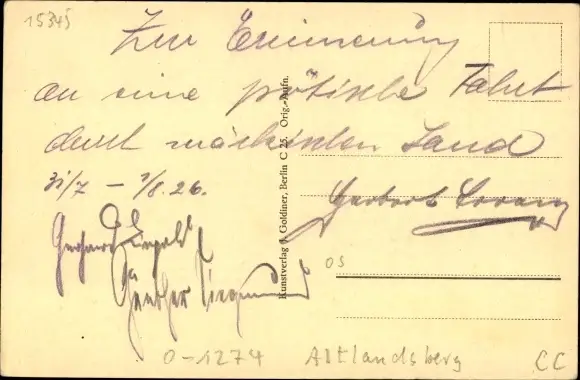 15345
Zur Erinnerung
an eine pötische Fahrt
durch märkisches Land
31/7 – 1/8. 26.
Gerhard
Günther Siegmund
Kunstverlag J. Goldiner, Berlin C 25. Orig.-Aufn.
OS
0-1274 Altlandsberg CC